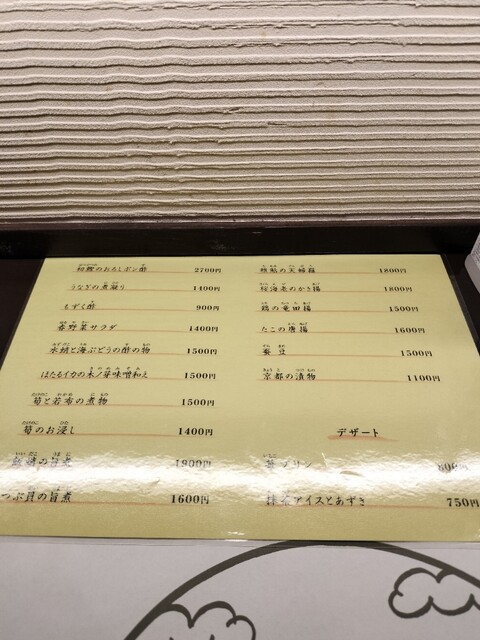 初鰹のおろしポン酢 2700円
うなぎの煮凝り 1400円
もずく酢 900円
春野菜サラダ 1400円
水蛸と海ぶどうの酢の物 1500円
ほたるイカの木ノ芽味噌和え 1500円
筍と若布の煮物 1500円
筍のお浸し 1400円
飯蛸の旨煮 1900円
つぶ貝の旨煮 1600円
の天婦羅 1800円
桜海老のかき揚 1800円
鶏の竜田揚 1500円
たこの唐揚 1600円
蚕豆 1500円
京都の漬物 1100円
デザート
苺プリン 600円
抹茶アイスとあずき 750円